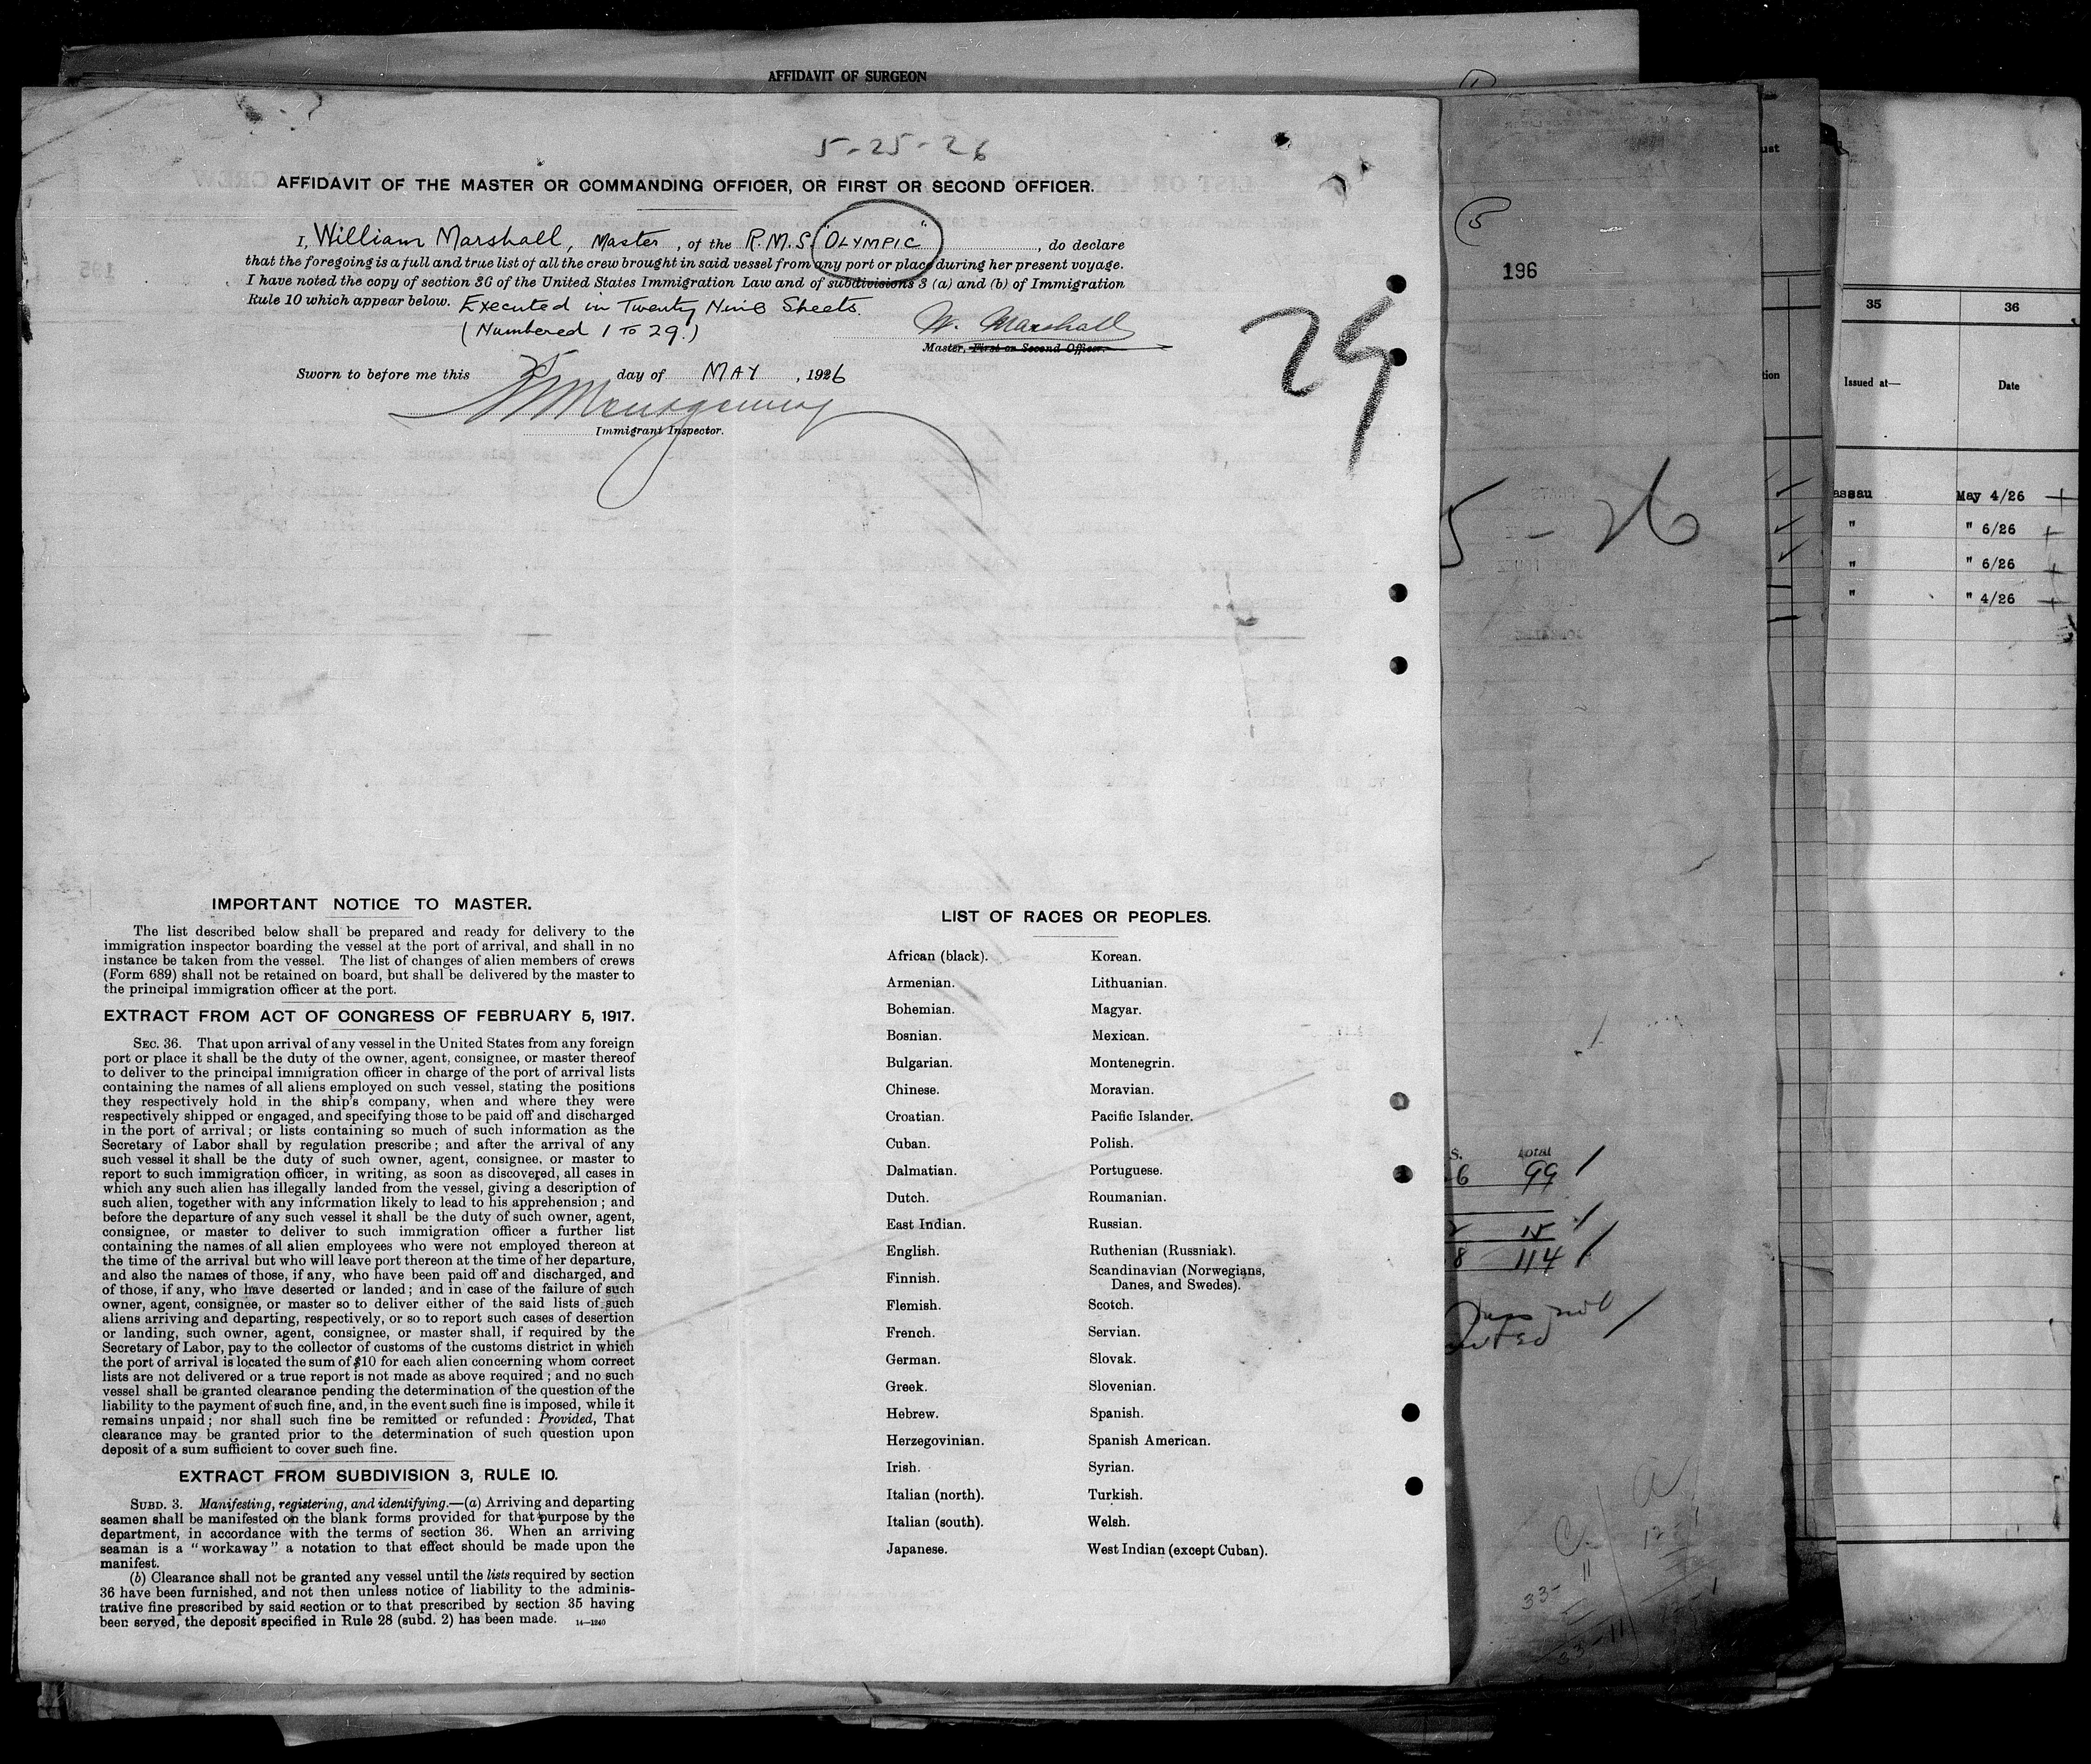 AFFIDAVIT OF SURGEON
5-25-26
AFFIDAVIT OF THE MASTER OR COMMANDING OFFICER, OR FIRST OR SECOND OFFICER.
I, William Marshall, Master, of the R.M.S. "OLYMPIC", do declare
that the foregoing is a full and true list of all the crew brought in said vessel from any port or place during her present voyage.
I have noted the copy of section 36 of the United States Immigration Law and of subdivisions 3 (a) and (b) of Immigration
Rule 10 which appear below. Executed in Twenty Nine Sheets.
(Numbered 1 To 29.)
W. Marshall
Master, First or Second Officer.
29
Sworn to before me this 25 day of MAY, 1926
Montgomery
Immigrant Inspector.
IMPORTANT NOTICE TO MASTER.
The list described below shall be prepared and ready for delivery to the
immigration inspector boarding the vessel at the port of arrival, and shall in no
instance be taken from the vessel. The list of changes of alien members of crews
(Form 689) shall not be retained on board, but shall be delivered by the master to
the principal immigration officer at the port.
EXTRACT FROM ACT OF CONGRESS OF FEBRUARY 5, 1917.
SEC. 36. That upon arrival of any vessel in the United States from any foreign
port or place it shall be the duty of the owner, agent, consignee, or master thereof
to deliver to the principal immigration officer in charge of the port of arrival lists
containing the names of all aliens employed on such vessel, stating the positions
they respectively hold in the ship's company, when and where they were
respectively shipped or engaged, and specifying those to be paid off and discharged
in the port of arrival; or lists containing so much of such information as the
Secretary of Labor shall by regulation prescribe; and after the arrival of any
such vessel it shall be the duty of such owner, agent, consignee, or master to
report to such immigration officer, in writing, as soon as discovered, all cases in
which any such alien has illegally landed from the vessel, giving a description of
such alien, together with any information likely to lead to his apprehension; and
before the departure of any such vessel it shall be the duty of such owner, agent,
consignee, or master to deliver to such immigration officer a further list
containing the names of all alien employees who were not employed thereon at
the time of the arrival but who will leave port thereon at the time of her departure,
and also the names of those, if any, who have been paid off and discharged, and
of those, if any, who have deserted or landed; and in case of the failure of such
owner, agent, consignee, or master so to deliver either of the said lists of such
aliens arriving and departing, respectively, or so to report such cases of desertion
or landing, such owner, agent, consignee, or master shall, if required by the
Secretary of Labor, pay to the collector of customs of the customs district in which
the port of arrival is located the sum of $10 for each alien concerning whom correct
lists are not delivered or a true report is not made as above required; and no such
vessel shall be granted clearance pending the determination of the question of the
liability to the payment of such fine, and, in the event such fine is imposed, while it
remains unpaid; nor shall such fine be remitted or refunded: Provided, That
clearance may be granted prior to the determination of such question upon
deposit of a sum sufficient to cover such fine.
EXTRACT FROM SUBDIVISION 3, RULE 10.
SUBD. 3. Manifesting, registering, and identifying.—(a) Arriving and departing
seamen shall be manifested on the blank forms provided for that purpose by the
department, in accordance with the terms of section 36. When an arriving
seaman is a "workaway" a notation to that effect should be made upon the
manifest.
(b) Clearance shall not be granted any vessel until the lists required by section
36 have been furnished, and not then unless notice of liability to the adminis-
trative fine prescribed by said section or to that prescribed by section 35 having
been served, the deposit specified in Rule 28 (subd. 2) has been made. 14—1240
LIST OF RACES OR PEOPLES.
African (black). Korean.
Armenian. Lithuanian.
Bohemian. Magyar.
Bosnian. Mexican.
Bulgarian. Montenegrin.
Chinese. Moravian.
Croatian. Pacific Islander.
Cuban. Polish.
Dalmatian. Portuguese.
Dutch. Roumanian.
East Indian. Russian.
English. Ruthenian (Russniak).
Finnish. Scandinavian (Norwegians,
Danes, and Swedes).
Flemish. Scotch.
French. Servian.
German. Slovak.
Greek. Slovenian.
Hebrew. Spanish.
Herzegovinian. Spanish American.
Irish. Syrian.
Italian (north). Turkish.
Italian (south). Welsh.
Japanese. West Indian (except Cuban).
196
5 - 26
S. total
6 99
2 15
8 114
33-11
35 36
Issued at— Date
assau May 4/26
" " 6/26
" " 6/26
" " 4/26